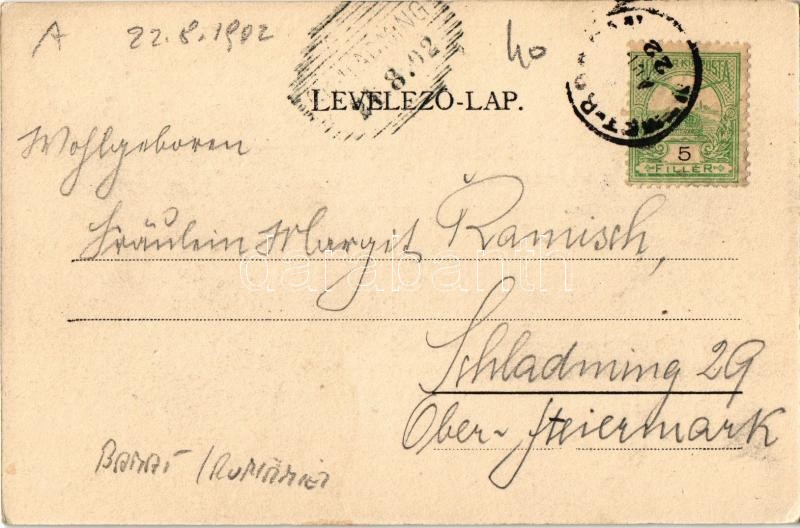 A 22.8.1902
SCHLADMING
8.02
40
LEVELEZŐ-LAP.
MAGY. KIR. POSTA
5
FILLÉR
Wohlgeboren
Fräulein Margit Ramisch,
darabanth
Schladming 29
Ober-Steiermark
BANAT /RUMÄNIEN